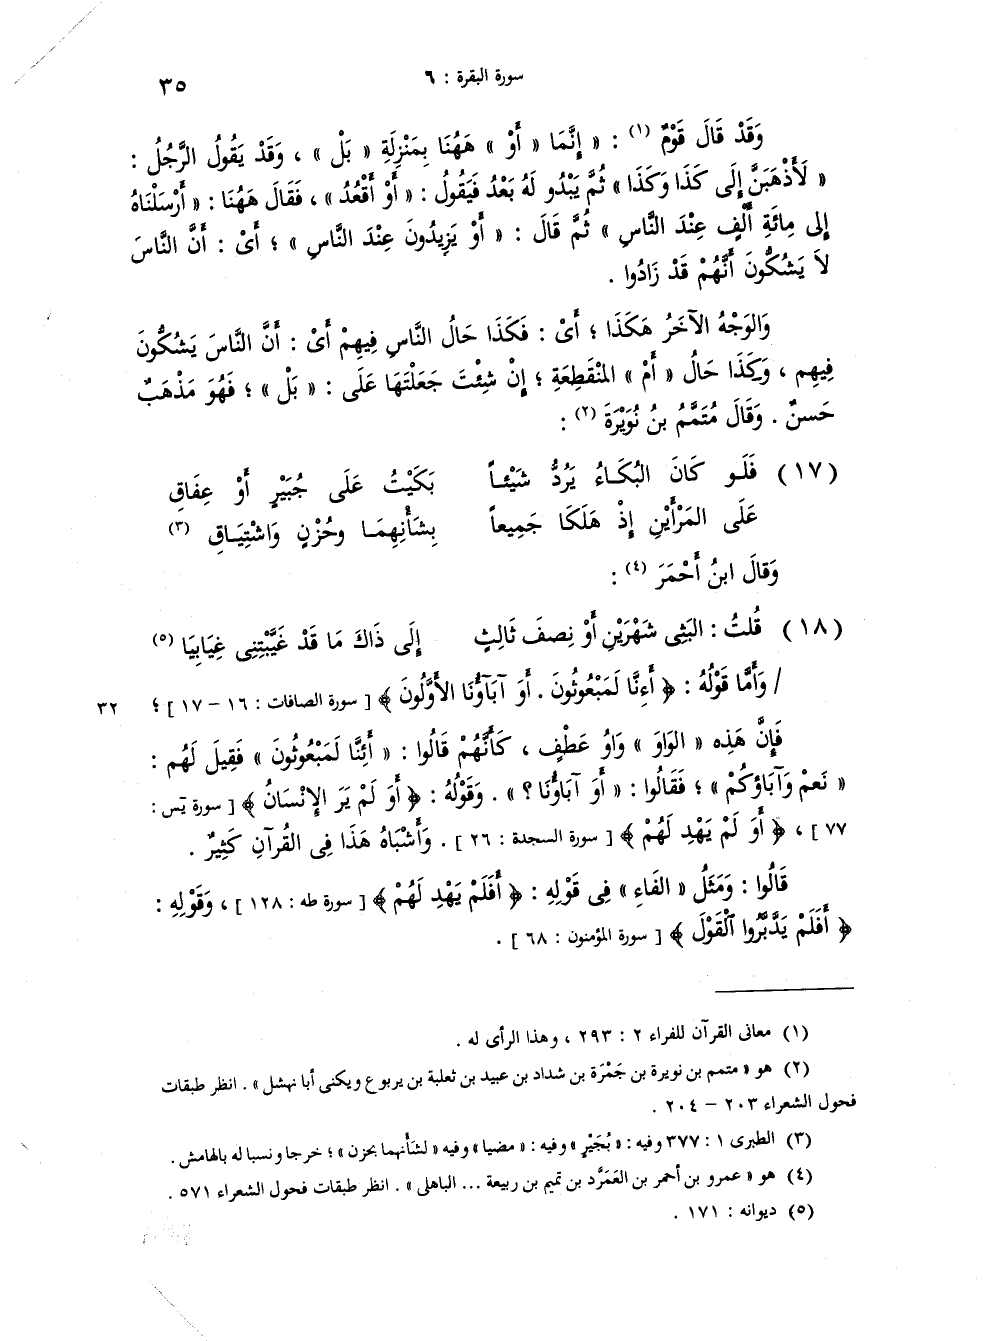 سورة البقرة : ٦
٣٥
وَقَدْ قَالَ قَوْمٌ (١) : « إِنَّمَا « أَوْ » هَهُنَا بِمَنْزِلَةِ « بَلْ » ، وَقَدْ يَقُولُ الرَّجُلُ :
« لَأَذْهَبَنَّ إِلَى كَذَا وَكَذَا » ثُمَّ يَبْدُو لَهُ بَعْدُ فَيَقُولُ : « أَوْ أَقْعُدُ » ، فَقَالَ هَهُنَا : « أَرْسَلْنَاهُ
إِلى مِائَةِ أَلْفٍ عِنْدَ النَّاسِ » ثُمَّ قَالَ : « أَوْ يَزِيدُونَ عِنْدَ النَّاسِ » ؛ أَىْ : أَنَّ النَّاسَ
لاَ يَشكُّونَ أَنَّهُمْ قَدْ زَادُوا .
وَالوَجْهُ الآخَرُ هَكَذَا ؛ أَىْ : فَكَذَا حَالُ النَّاسِ فِيهِمْ أَىْ : أَنَّ النَّاسَ يَشكُّونَ
فِيهِم ، وَكَذَا حَالُ « أَمْ » المُنْقَطِعَةِ ؛ إِنْ شِئْتَ جَعَلْتَهَا عَلَى : « بَلْ » ؛ فَهُوَ مَذْهَبٌ
حَسنٌ . وَقَالَ مُتَمَّمُ بنُ نُوَيْرَةَ (٢) :
(١٧) فَلَـو كَانَ البُكَـاءُ يَرُدُّ شَيْئـاً بَكَيْتُ عَلَى جُبَيْرٍ أَوْ عِفَاقِ
عَلَى المَرْأَيْنِ إِذْ هَلَكَا جَمِيعاً بِشَأْنِهِمَـا وحُزْنٍ وَاشْتِيَـاقِ (٣)
وَقالَ ابنُ أَحْمَرَ (٤) :
(١٨) قُلتُ : البَثِى شَهْرَيْنِ أَوْ نِصفَ ثَالِثٍ إِلَى ذَاكَ مَا قَدْ غَيَّبْتِنِى غِيَابِيَا (٥)
/ وَأَمَّا قَوْلُهُ : ﴿ أَءِنَّا لَمَبْعُوثُونَ . أَوَ آبَآؤُنَا الأَوَّلُونَ ﴾ [ سورة الصافات : ١٦ – ١٧ ] ؛ ٣٢
فَإِنَّ هَذِه « الوَاوَ » وَاوُ عَطْفٍ ، كَأَنَّهُمْ قَالُوا : « أَئِنَّا لَمَبْعُوثُونَ » فَقِيلَ لَهُم :
« نَعمْ وَآبَاؤكُمْ » ؛ فَقَالُوا : « أَوَ آبَاؤُنَا ؟ » . وَقَوْلُهُ : ﴿ أَوَ لَمْ يَرَ الإِنْسَانُ ﴾ [ سورة يَس :
٧٧ ] ، ﴿ أَوَ لَمْ يَهْدِ لَهُمْ ﴾ [ سورة السجدة : ٢٦ ] . وَأَشْبَاهُ هَذَا فِى القُرآنِ كَثِيرٌ .
قَالُوا : وَمَثَلُ « الفَاءِ » فِى قَوْلِهِ : ﴿ أَفَلَمْ يَهْدِ لَهُمْ ﴾ [ سورة طه : ١٢٨ ] ، وَقَوْلِهِ :
﴿ أَفَلَمْ يَدَّبَّرُوا ٱلْقَوْلَ ﴾ [ سورة المؤمنون : ٦٨ ] .
(١) معانى القرآن للفراء ٢ : ٢٩٣ ، وهذا الرأى له .
(٢) هو « متمم بن نويرة بن جَمْرَة بن شداد بن عبيد بن ثعلبة بن يربوع ويكنى أبا نهشل » . انظر طبقات
فحول الشعراء ٢٠٣ – ٢٠٤ .
(٣) الطبرى ١ : ٣٧٧ وفيه : « بُجَيْرٍ » وفيه : « مضيا » وفيه « لشَأنهما بحزن » ؛ خرجا ونسبا له بالهامش .
(٤) هو « عمرو بن أحمر بن العَمَرَّد بن تميم بن ربيعة ... الباهلى » . انظر طبقات فحول الشعراء ٥٧١ .
(٥) ديوانه : ١٧١ .